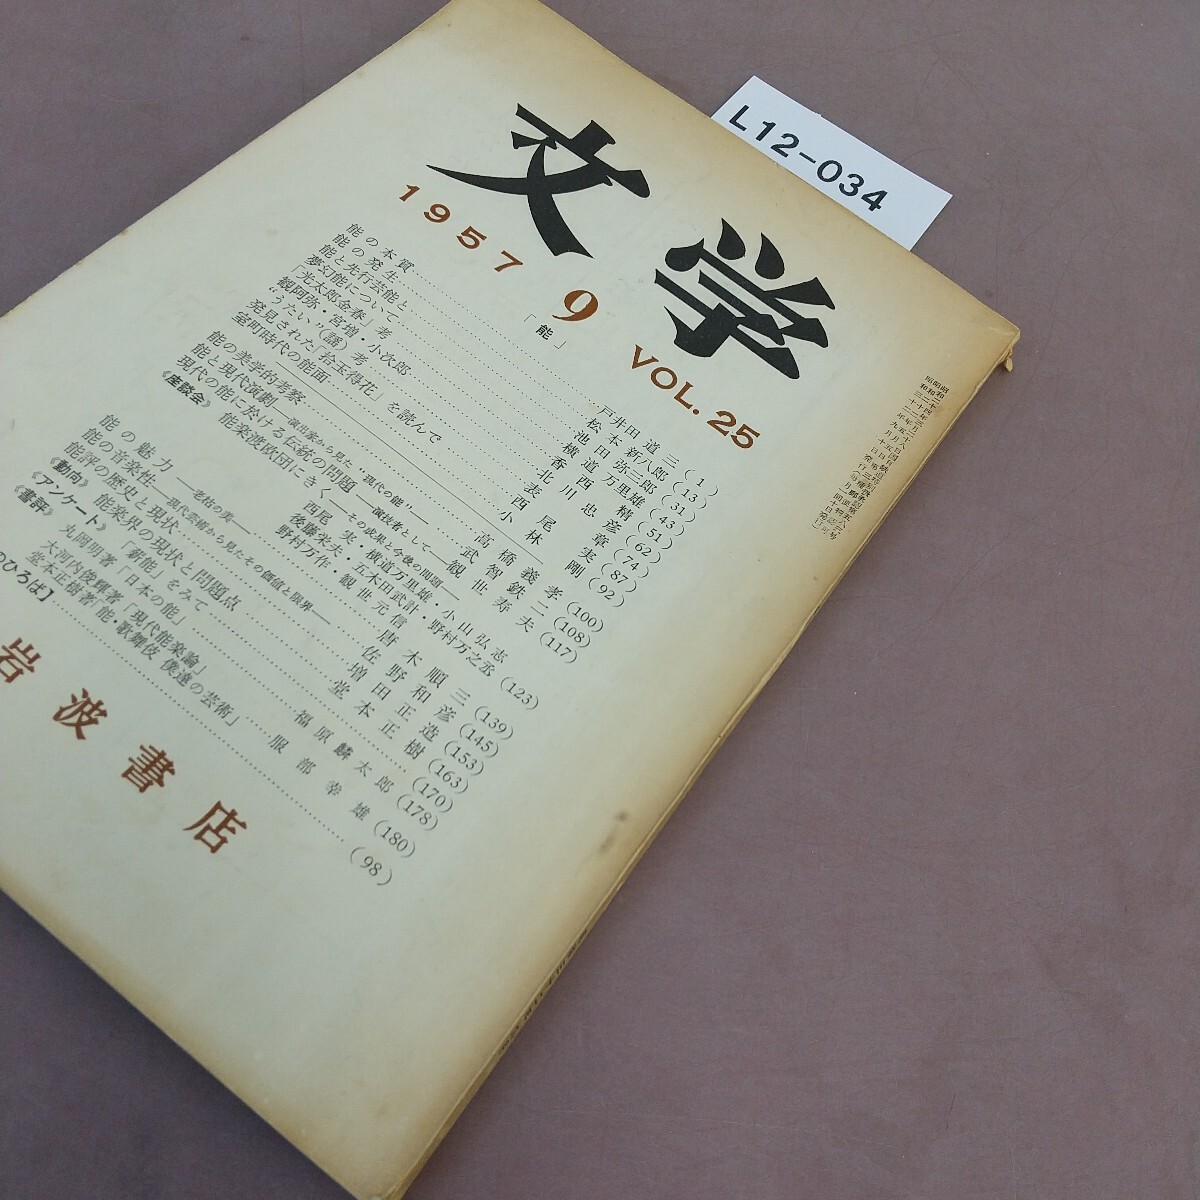 L12-034
文学
1957 9 VOL.25
「能」
能の本質 戸井田道三 (1)
能の発生 松本新八郎 (13)
能と先行芸能と 池田弥三郎 (31)
夢幻能について 横道万里雄 (43)
「光太郎金春」考 香西精 (51)
観阿弥・宮増・小次郎 北川忠彦 (62)
“うたい”(謡)考 表章 (74)
発見された「拾玉得花」を読んで 西尾実 (87)
室町時代の能面 小林剛 (92)
能の美学的考察 高橋義孝 (100)
能と現代演劇―演出家から見た「現代の能」― 武智鉄二 (108)
現代の能に於ける伝統の問題―演技者として― 観世寿夫 (117)
《座談会》 能楽渡欧団にきく―その成果と今後の問題―
西尾実・横道万里雄・小山弘志
後藤栄夫・五木田武計・野村万之丞
野村万作・観世元信 (123)
能の魅力―老祐の美― 唐木順三 (139)
能の音楽性―現代芸術から見たその価値と限界― 佐野和彦 (145)
能評の歴史と現状 増田正造 (153)
《動向》 能楽界の現状と問題点 堂本正樹 (163)
《アンケート》 「新能」をみて (170)
《書評》 丸岡明著「日本の能」 福原麟太郎 (178)
大河内俊輝著「現代能楽論」
堂本正樹著「能・歌舞伎 僕達の芸術」 服部幸雄 (180)
のひろば】 (98)
岩波書店